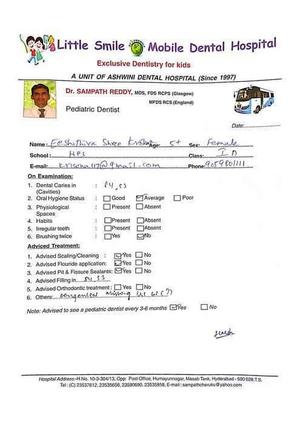 Little Smile Mobile Dental Hospital
Exclusive Dentistry for kids
A UNIT OF ASHWINI DENTAL HOSPITAL (Since 1997)
Dr. SAMPATH REDDY, MDS, FDS RCPS (Glasgow)
MFDS RCS (England)
Pediatric Dentist
Date:
Name: Shree Age: 5+ Sex: Female
School: HPS Class: I D
E-mail: Phone:
On Examination:
1. Dental Caries in : 84, 83
(Cavities)
2. Oral Hygiene Status : Good Average Poor
3. Physiological : Present Absent
Spaces
4. Habits : Present Absent
5. Irregular teeth : Present Absent
6. Brushing twice : Yes No
Adviced Treatment:
1. Advised Scaling/Cleaning : Yes No
2. Advised Flouride application: Yes No
3. Advised Pit & Fissure Sealants: Yes No
4. Advised Filling in
5. Advised Orthodontic treatment : Yes No
6. Others: congenital missing
Note: Advised to see a pediatric dentist every 3-6 months Yes No
Hospital Address: H.No. 10-3-304/13, Opp: Post Office, Humayunnagar, Masab Tank, Hyderabad - 500 028, T.S.